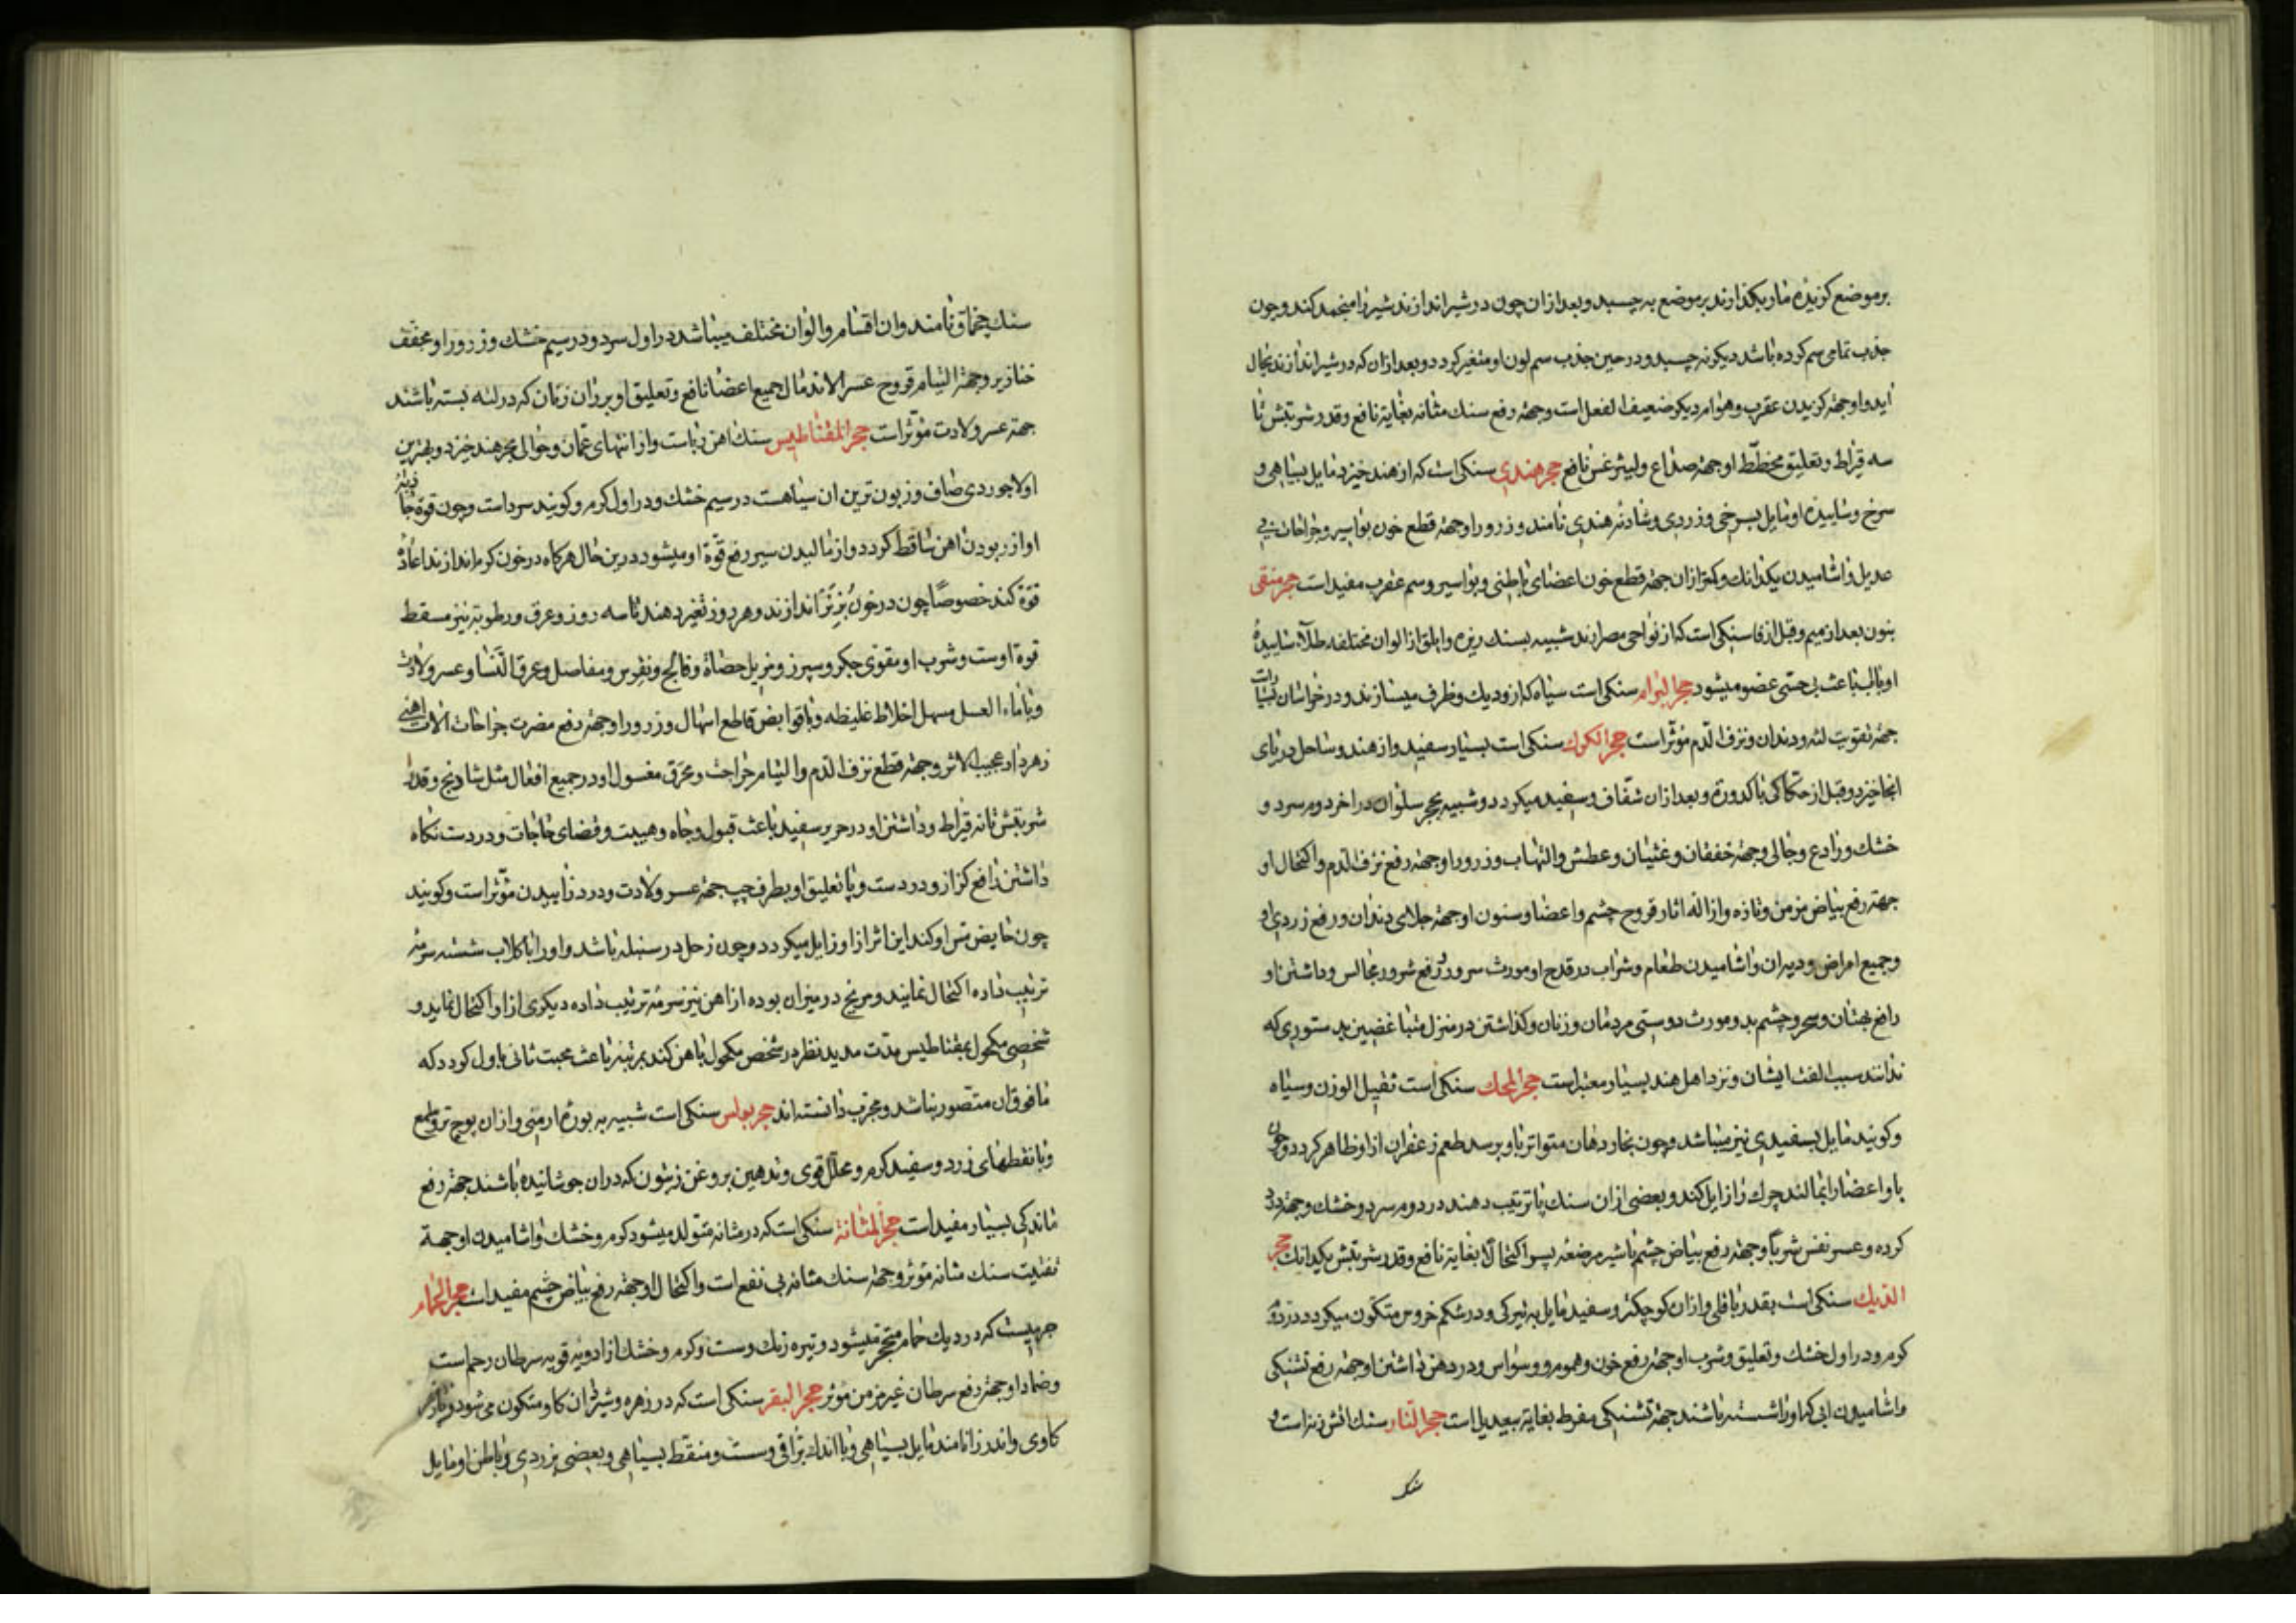 بر موضع کزیده مار بکذارند بر موضع به چسبد و بعد از ان چون در شیر اندازند شیر را منجمد کند و چون
جذب تمامی سم کرده باشد دیکر نه چسبد و در حین جذب سم لون او متغیر کردد و بعد از ان که در شیر اندازند بحال
اید و او جهة کزیدن عقرب و هوام دیکر ضعیف الفعل است و جهة رفع سنك مثانه بغایة نافع و قدر شربتش تا
سه قیراط و تعلیق مخطط او جهة صداع و لیثرغس نافع حجر هندی سنکی است که از هند خیزد مایل بسیاهی و
سرخ و ساییده او مایل بسرخی و زردی و شادنه هندی نامند و زرور او جهة قطع خون بواسیر و جراحات بی
عدیل و اشامیدن یکدانك و کمتر ازان جهة قطع خون اعضای باطنی و بواسیر و سم عقرب مفید است حجر منقی
بنون بعد از میم و قبل از قا سنکی است که از نواحی مصر ارند شبیه بسنك ریزه و ابلق از الوان مختلفه طلاء ساییده
او باب باعث بی حسی عضو میشود حجر البرام سنکی است سیاه که ازو دیك و ظرف میسازند و در خراسان بسیار است
جهة تقویت لثه و دندان و نزف الدم مؤثر است حجر الکوك سنکی است بسیار سفید و از هند و ساحل دریای
انجا خیزد و قبل از حکاکی باکدورة و بعد ازان شفاف و سفید میکردد و شبیه بحجر سلوان در اخر دوم سرد و
خشك و رادع و جالی و جهة خفقان و غثیان و عطش و التهاب و زرور او جهة رفع نزف الدم و اکتحال او
جهة رفع بیاض مزمن و تازه و ازاله اثار قروح چشم و اعضا و سنون او جهة جلای دندان و رفع زردی او
و جمیع امراض و دیران و اشامیدن طعام و شراب در قدح او مورث سرور و رفع شرور مجالس و داشتن او
رافع بهتان و سحر و چشم بد و مورث دوستی مردمان و زنان و کذاشتن در منزل متباغضین بدستوری که
ندانند سبب الفت ایشان و نزد اهل هند بسیار معتبر است حجر المحك سنکی است ثقیل الوزن و سیاه
و کویند مایل بسفیدی نیز میباشد و چون بخار دهان متواتر باو برسد طعم زعفران ازو ظاهر کردد و چون
باو اعضا را بمالند چرك را زایل کند و بعضی ازان سنك پا ترتیب دهند در دوم سرد و خشك و جهة درد
کرده و عسر نفس شرباً و جهة رفع بیاض چشم با شیر مرضعه پسر اکتحالاً بغایة نافع و قدر شربتش یکدانك حجر
الدیك سنکی است بقدر باقلی و ازان کوچکتر و سفید مایل به تیرکی و در شکم خروس متکون میکردد در دوم
کرم و در اول خشك و تعلیق و شرب او جهة رفع خون و هموم و وسواس و در دهن داشتن او جهة رفع تشنکی
و اشامیدن ابی که او را شسته باشند جهة تشنکی مفرط بغایة بیعدیل است حجر النار سنك اتش زنه است و
سنك
سنك چخماق نامند و ان اقسام و الوان مختلف میباشد در اول سرد و در سیم خشك و زرور او مجفف
خنازیر و جهة التیام قروح عسر الاندمال جمیع اعضا نافع و تعلیق او بر ران زنان که در لته بسته باشند
جهة عسر ولادت مؤثر است حجر المقناطیس سنك اهن رباست و از انتهای عمان و حوالی بحر هند خیزد و بهترین
او لاجوردی صاف و زبون ترین ان سیاهست در سیم خشك و در اول کرم و کویند سرد است و چون قوة جاذبه
او از ربودن اهن ساقط کردد و از مالیدن سیر رفع قوة او میشود درین حال هرکاه در خون کرم اندازند اعاده
قوة کند خصوصاً چون در خون بز نر اندازند و هر روز تغیر دهند تا سه روز و عرق و رطوبت نیز مسقط
قوة اوست و شرب او مقوی جکر و سپرز و مزیل حصاة و فالج و نقرس و مفاصل و عرق النسا و عسر ولادت
و با ماء العسل مسهل اخلاط غلیظه و با قوابض قاطع اسهال و زرور او جهة رفع مضرت جراحات الات اهنی
زهردار عجیب الاثر و جهة قطع نزف الدم و التیام جراحت و محرق مغسول او در جمیع افعال مثل شادنج و قدر
شربتش تا نه قیراط و داشتن او در حریر سفید باعث قبول و جاه و هیبت و قضای حاجات و در دست نکاه
داشتن رافع کزاز و درد دست و پا تعلیق او بطرف چپ جهة عسر ولادت و درد زاییدن مؤثر است و کویند
چون حایض مس او کند این اثر ازو زایل میکردد و چون زحل در سنبله باشد و او را با کلاب شسته سرمه
ترتیب داده اکتحال نمایند و مریخ در میزان بوده از اهن نیز سرمه ترتیب داده دیکری ازو اکتحال نماید و
شخصی مکحول بمقناطیس مدت مدید نظر در شخص مکحول باهن کند بمرتبه باعث محبت ثانی باول کردد که
مافوق ان متصور نباشد و مجرب دانسته اند حجر بولس سنکی است شبیه به بوره ارمنی و ازان پوچ تر و لامع
و با نقطهای زرد و سفید کرم و محلل قوی و تدهین بروغن زیتون که در ان جوشانیده باشند جهة رفع
ماندکی بسیار مفید است حجر المثانة سنکی است که در مثانه متولد میشود کرم و خشك و اشامیدن او جهة
تفتیت سنك مثانه مؤثر و جهة سنك مثانه بی نفع است و اکتحال او جهة رفع بیاض چشم مفید است حجر الحمام
جرمیست که در دیك حمام متحجر میشود و تیره رنك و سست و کرم و خشك از ادویه قویه سرطان رحم است
و ضماد او جهة رفع سرطان غیر مزمن مؤثر حجر البقر سنکی است که در زهره و شیردان کاو متکون می شود و پازهر
کاوی و اندرزا نامند مایل بسیاهی و با اندك براقی و سست و منقط بسیاهی و بعضی بزردی و باطن او مایل